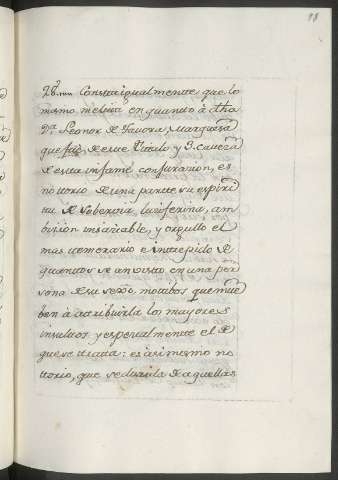 98
28. Consta igualmente que lo
mismo milita en quanto à dha
Da. Leonor de Tavora, Marquesa
que fue de este Titulo y 3. caveza
de esta infame conjuracion, es
notorio de una parte su espiri
tu de Sobervia, luciferina, am
bision insaciable, y orgullo el
mas temerario e intrepido de
quantos se an visto en una per
sona de su sexo, motibos que mue
ben à attribuirla los mayores
insultos y espesialmente el de
que se tratta: es asi mesmo no
ttorio, que seducida de aquellas